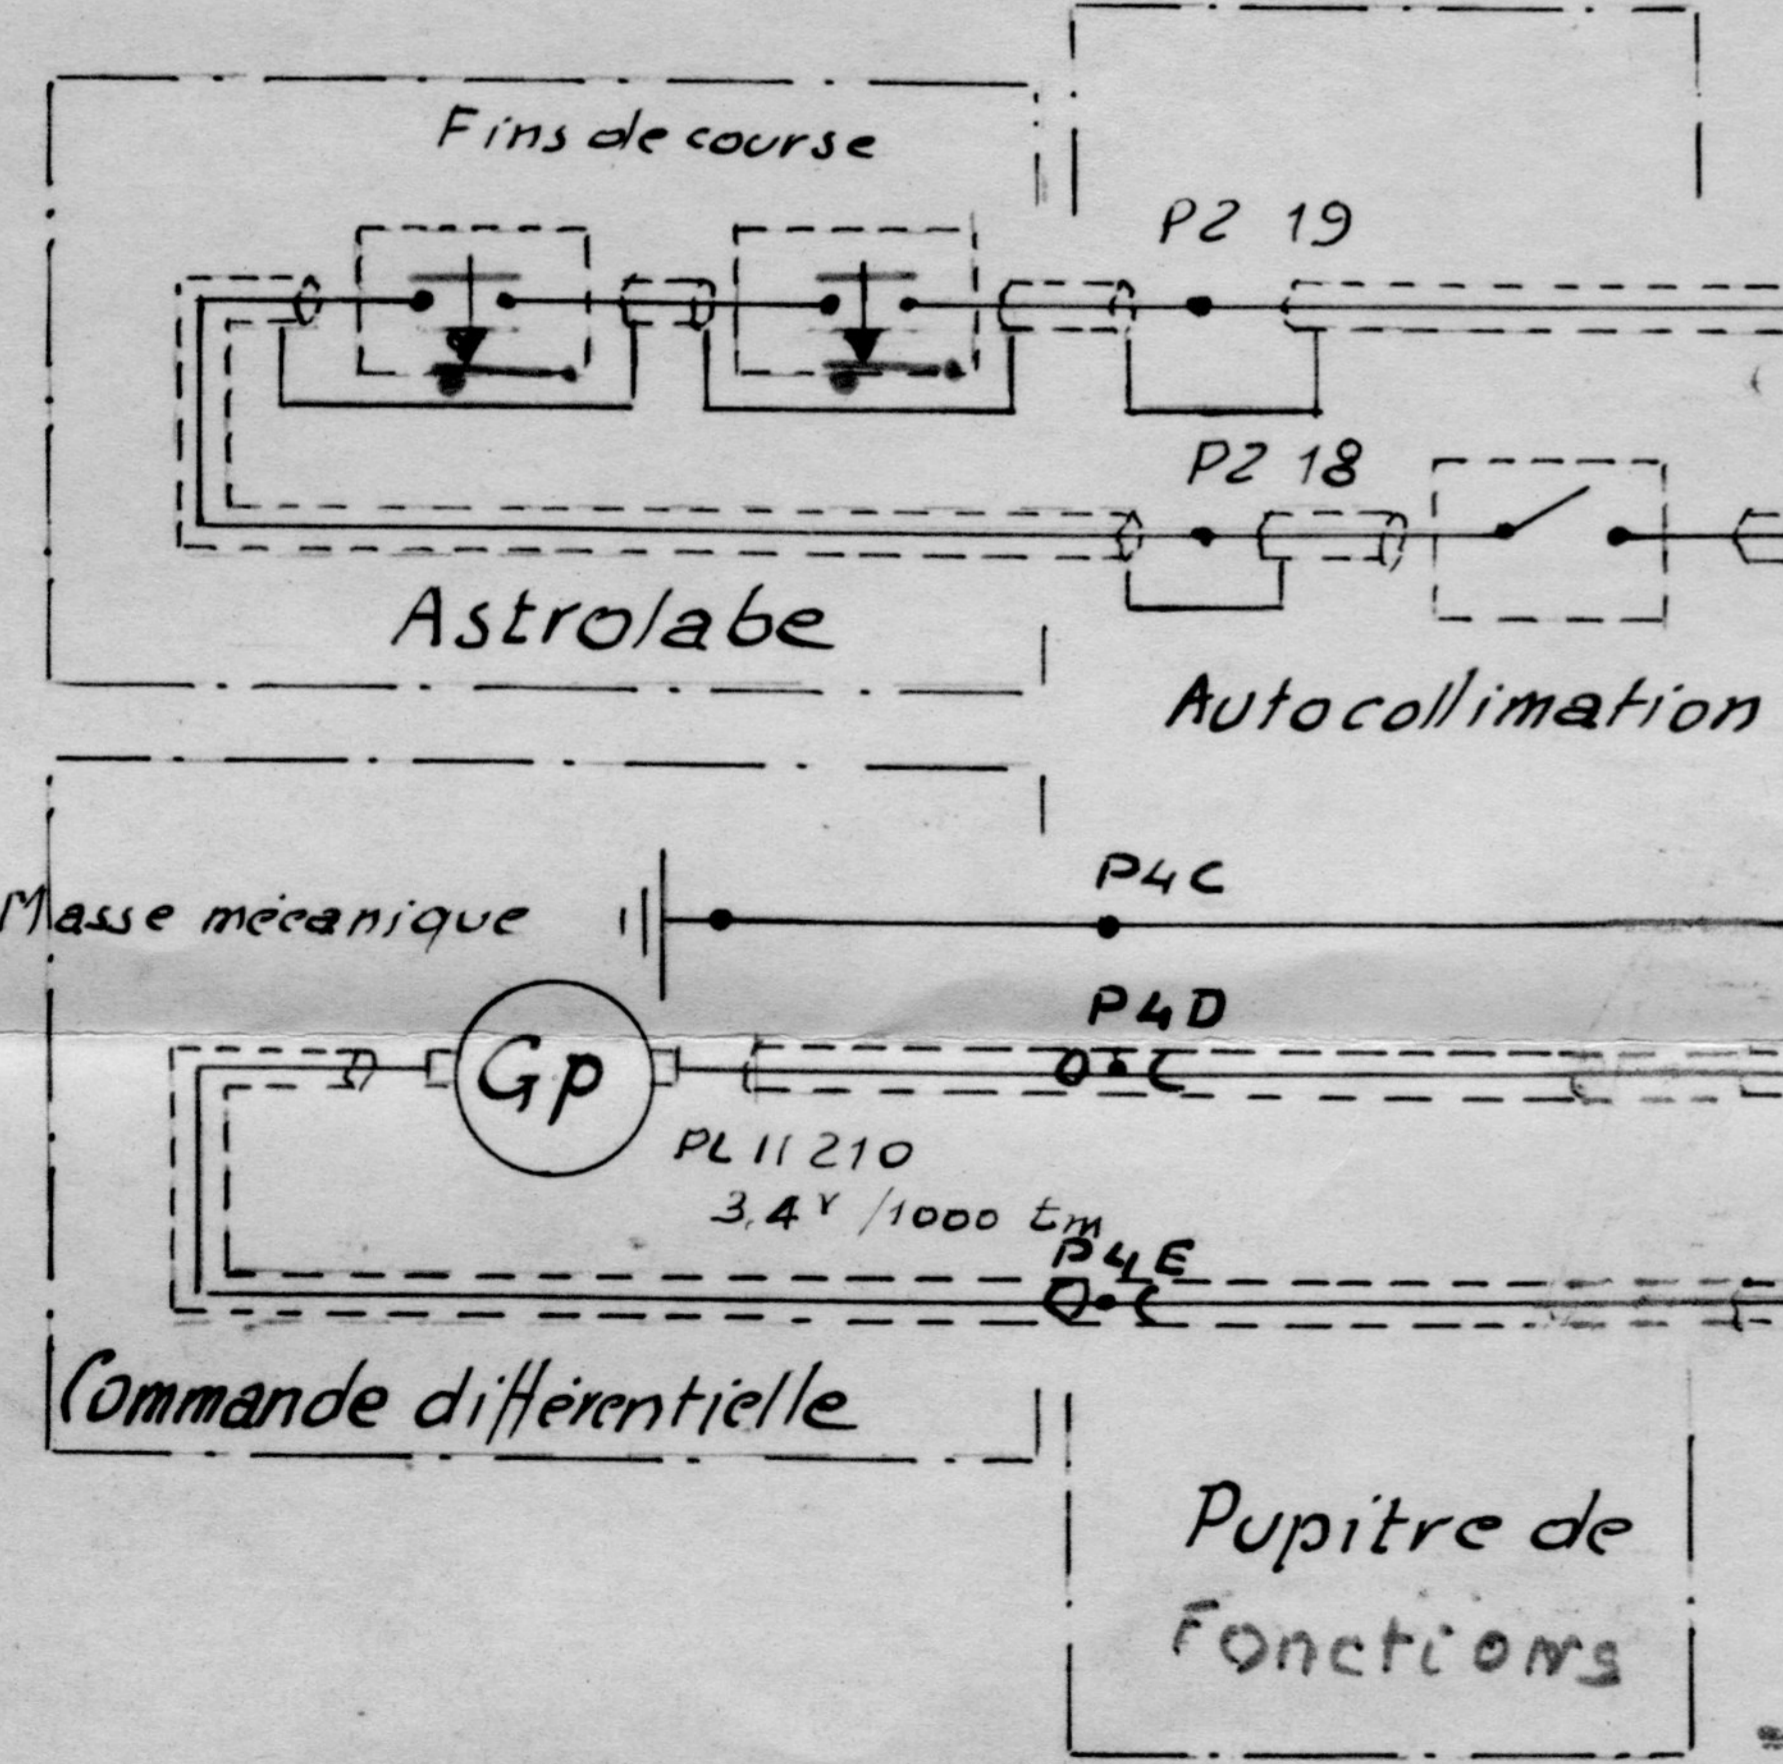 Fins de course
P2 19
P2 18
Astrolabe
Autocollimation
P4C
Masse mécanique
P4D
Gp
PL 11 210
3,4 V /1000 tm
P4E
Commande différentielle
Pupitre de
Fonctions